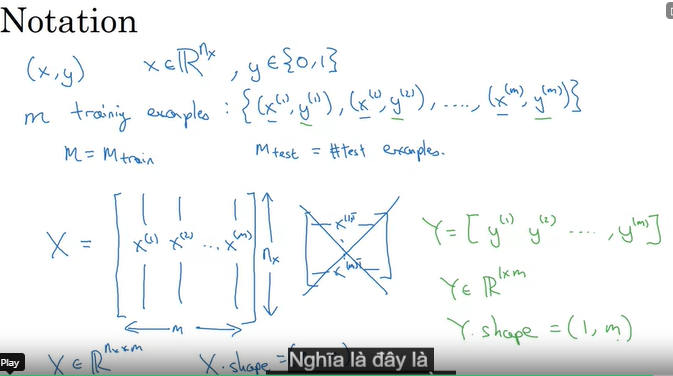 Notation
(x,y) x ∈ ℝ^{n_x}, y ∈ {0,1}
m training examples : {(x^{(1)}, y^{(1)}), (x^{(2)}, y^{(2)}), ...., (x^{(m)}, y^{(m)})}
M = M_{train} M_{test} = #test examples.
X = [ x^{(1)} x^{(2)} ... x^{(m)} ] n_x
m
x^{(1)T}
x^{(m)T}
Y = [ y^{(1)} y^{(2)} ...., y^{(m)} ]
Y ∈ ℝ^{1×m}
Y.shape = (1, m)
X ∈ ℝ^{n_x×m} X.shape = (
Nghĩa là đây là
Play